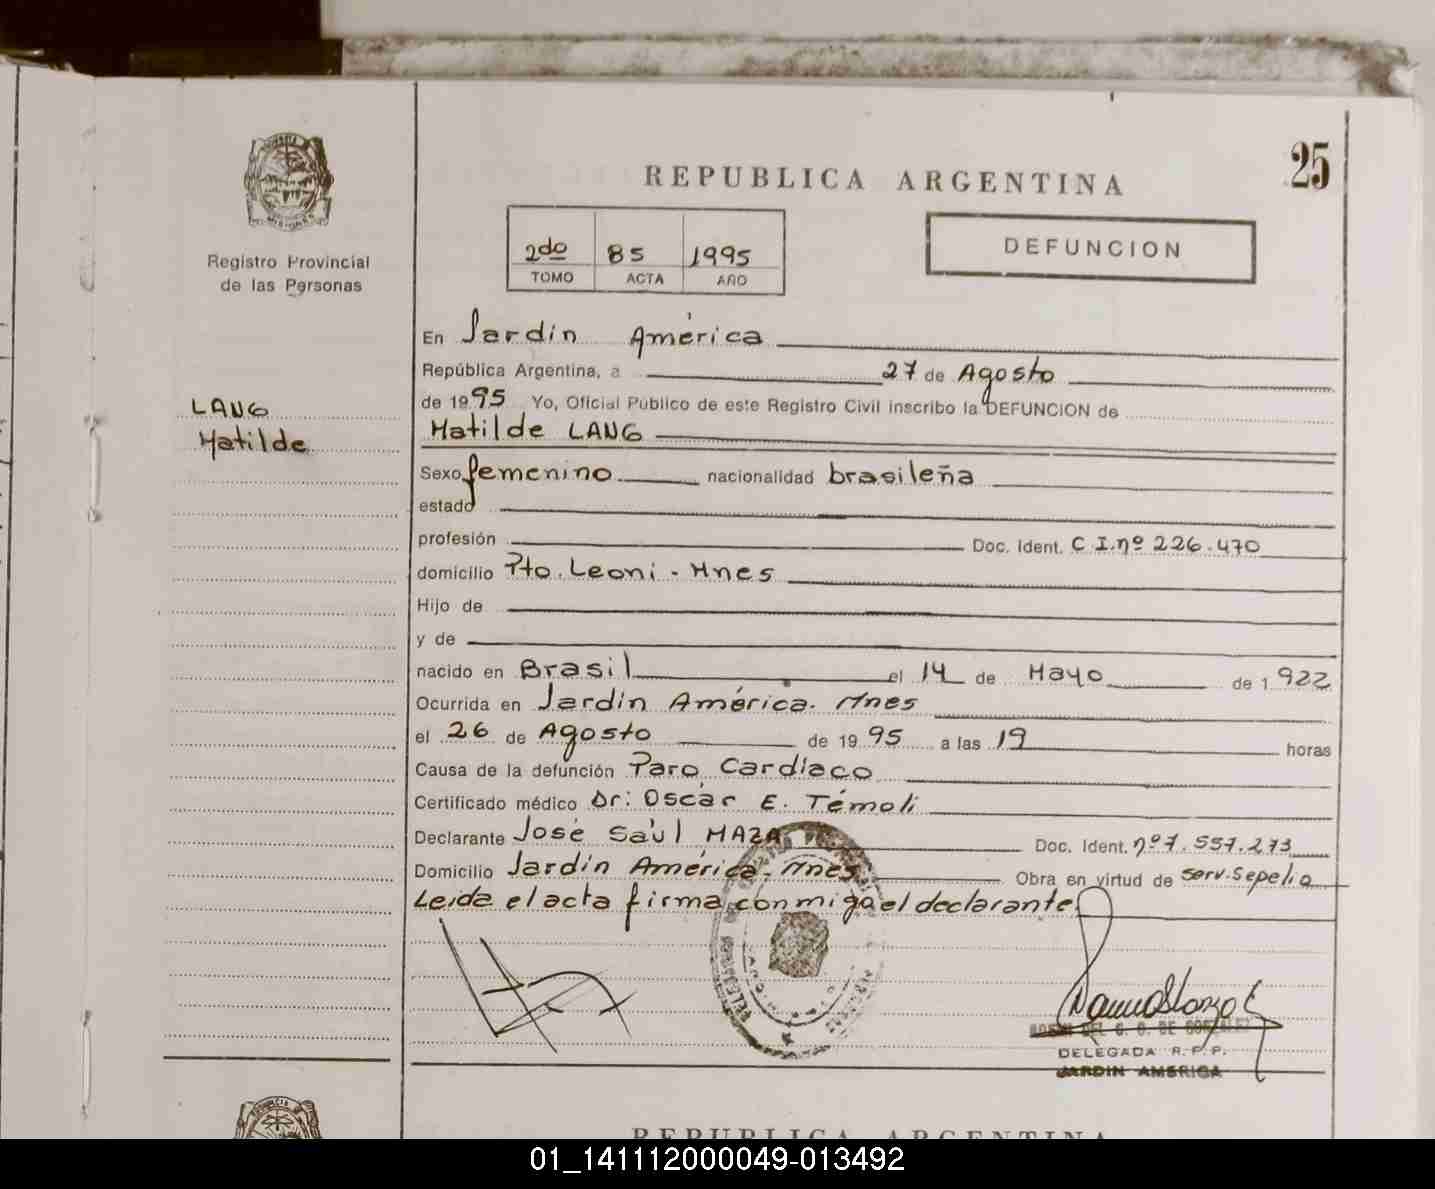 25
REPUBLICA ARGENTINA
MISIONES
Registro Provincial
de las Personas
2do 85 1995
TOMO ACTA AÑO
DEFUNCION
LANG
Matilde
En Jardín América
República Argentina, a 27 de Agosto
de 1995 Yo, Oficial Público de este Registro Civil inscribo la DEFUNCION de
Matilde LANG
Sexo femenino nacionalidad brasileña
estado
profesión Doc. Ident. C.I.nº 226.470
domicilio Pto. Leoni - Mnes
Hijo de
y de
nacido en Brasil el 14 de Mayo de 1922
Ocurrida en Jardín América. Mnes
el 26 de Agosto de 1995 a las 19 horas
Causa de la defunción Paro Cardíaco
Certificado médico Dr: Oscar E. Témoli
Declarante José Saúl MAZA Doc. Ident. nº 7.557.273
Domicilio Jardín América. Mnes Obra en virtud de serv. Sepelio
Leída el acta firma conmigo el declarante
DEL C. G. DE GONZALEZ
DELEGADA R.P.P.
JARDIN AMERICA
REPUBLICA ARGENTINA
01_141112000049-013492